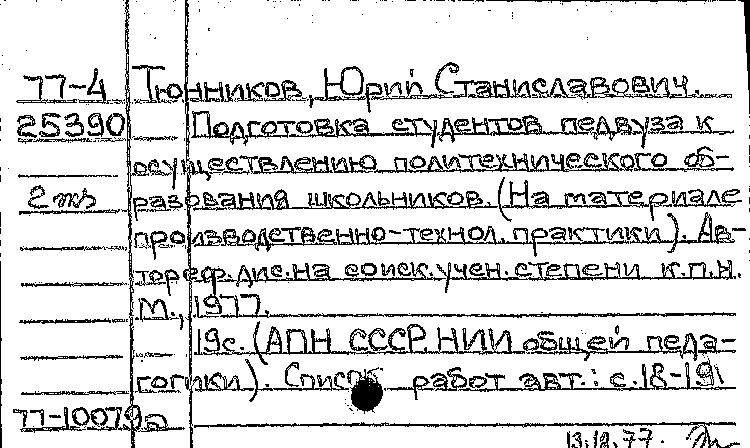 77-4 Тюнников, Юрий Станиславович.
25390 Подготовка студентов педвуза к
осуществлению политехнического об-
2 экз разования школьников. (На материале
производственно-технол. практики). Ав-
тореф. дис. на соиск. учен. степени к.п.н.
М., 1977.
19с. (АПН СССР. НИИ общей педа-
гогики). Список работ авт.: с.18-19
77-10079а
13.12.77.